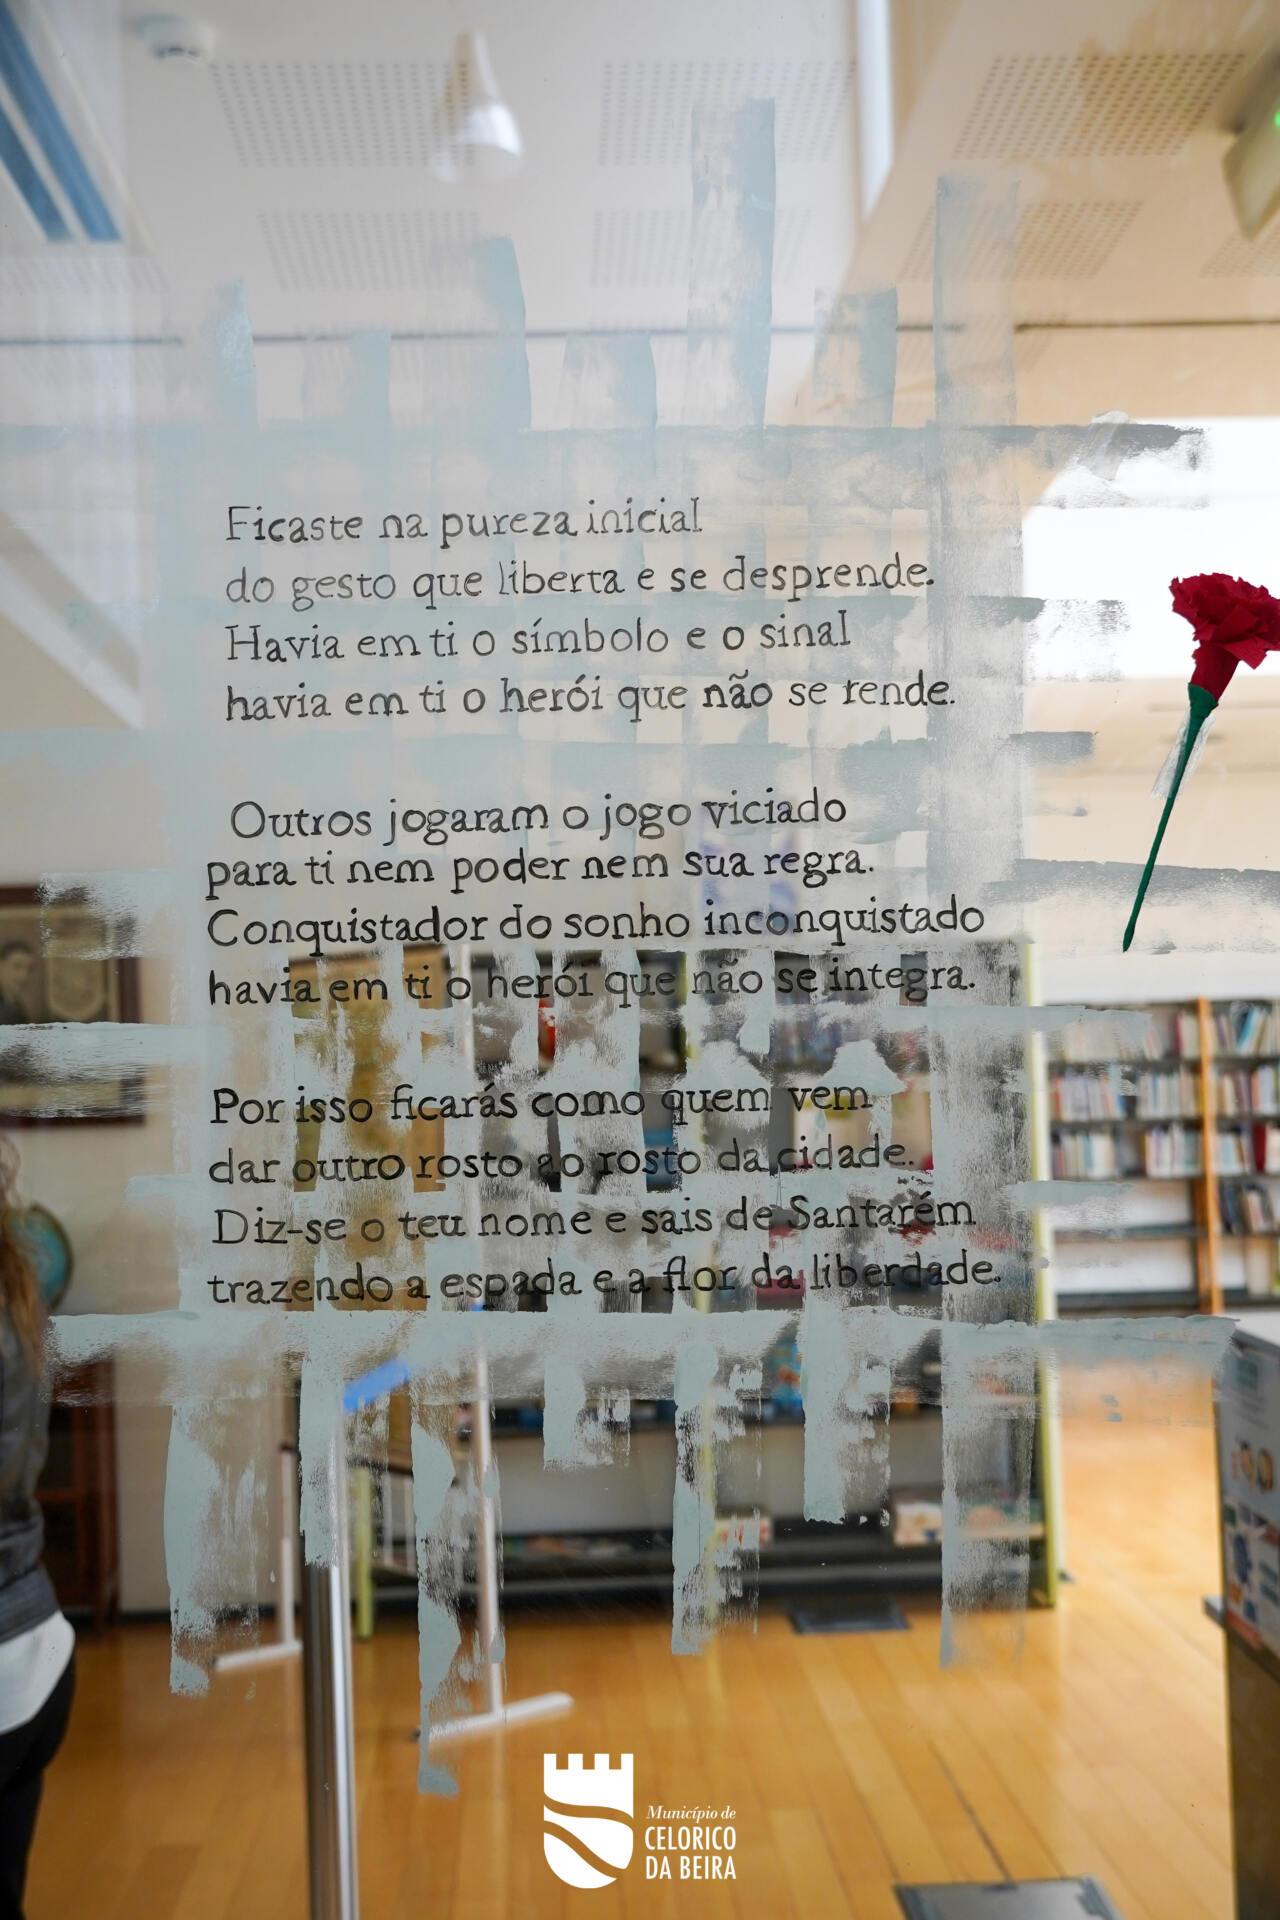 Ficaste na pureza inicial
do gesto que liberta e se desprende.
Havia em ti o símbolo e o sinal
havia em ti o herói que não se rende.
Outros jogaram o jogo viciado
para ti nem poder nem sua regra.
Conquistador do sonho inconquistado
havia em ti o herói que não se integra.
Por isso ficarás como quem vem
dar outro rosto ao rosto da cidade.
Diz-se o teu nome e sais de Santarém
trazendo a espada e a flor da liberdade.
Município de
CELORICO
DA BEIRA